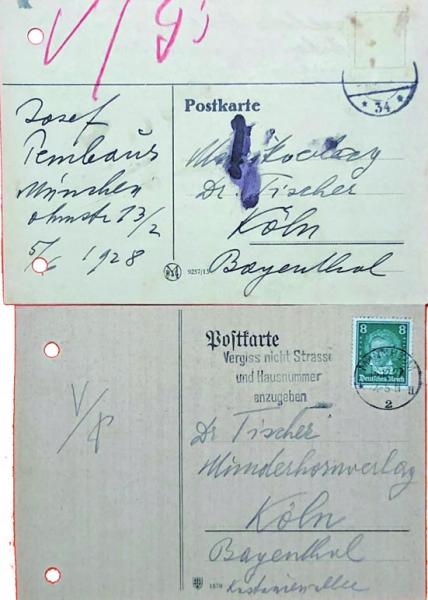 V/9i
Josef
Pembaur
München
Ohmstr 13/2
5/6 1928
Postkarte
Musikverlag
Dr. Tischer
Köln
Bayenthal
9257/15
* 34 *
Postkarte
Vergiss nicht Strasse
und Hausnummer
anzugeben
8 8
Deutsches Reich
MÜNCHEN
2
V/
Dr Tischer
Wunderhornverlag
Köln
Bayenthal
Kastanienallee
1870